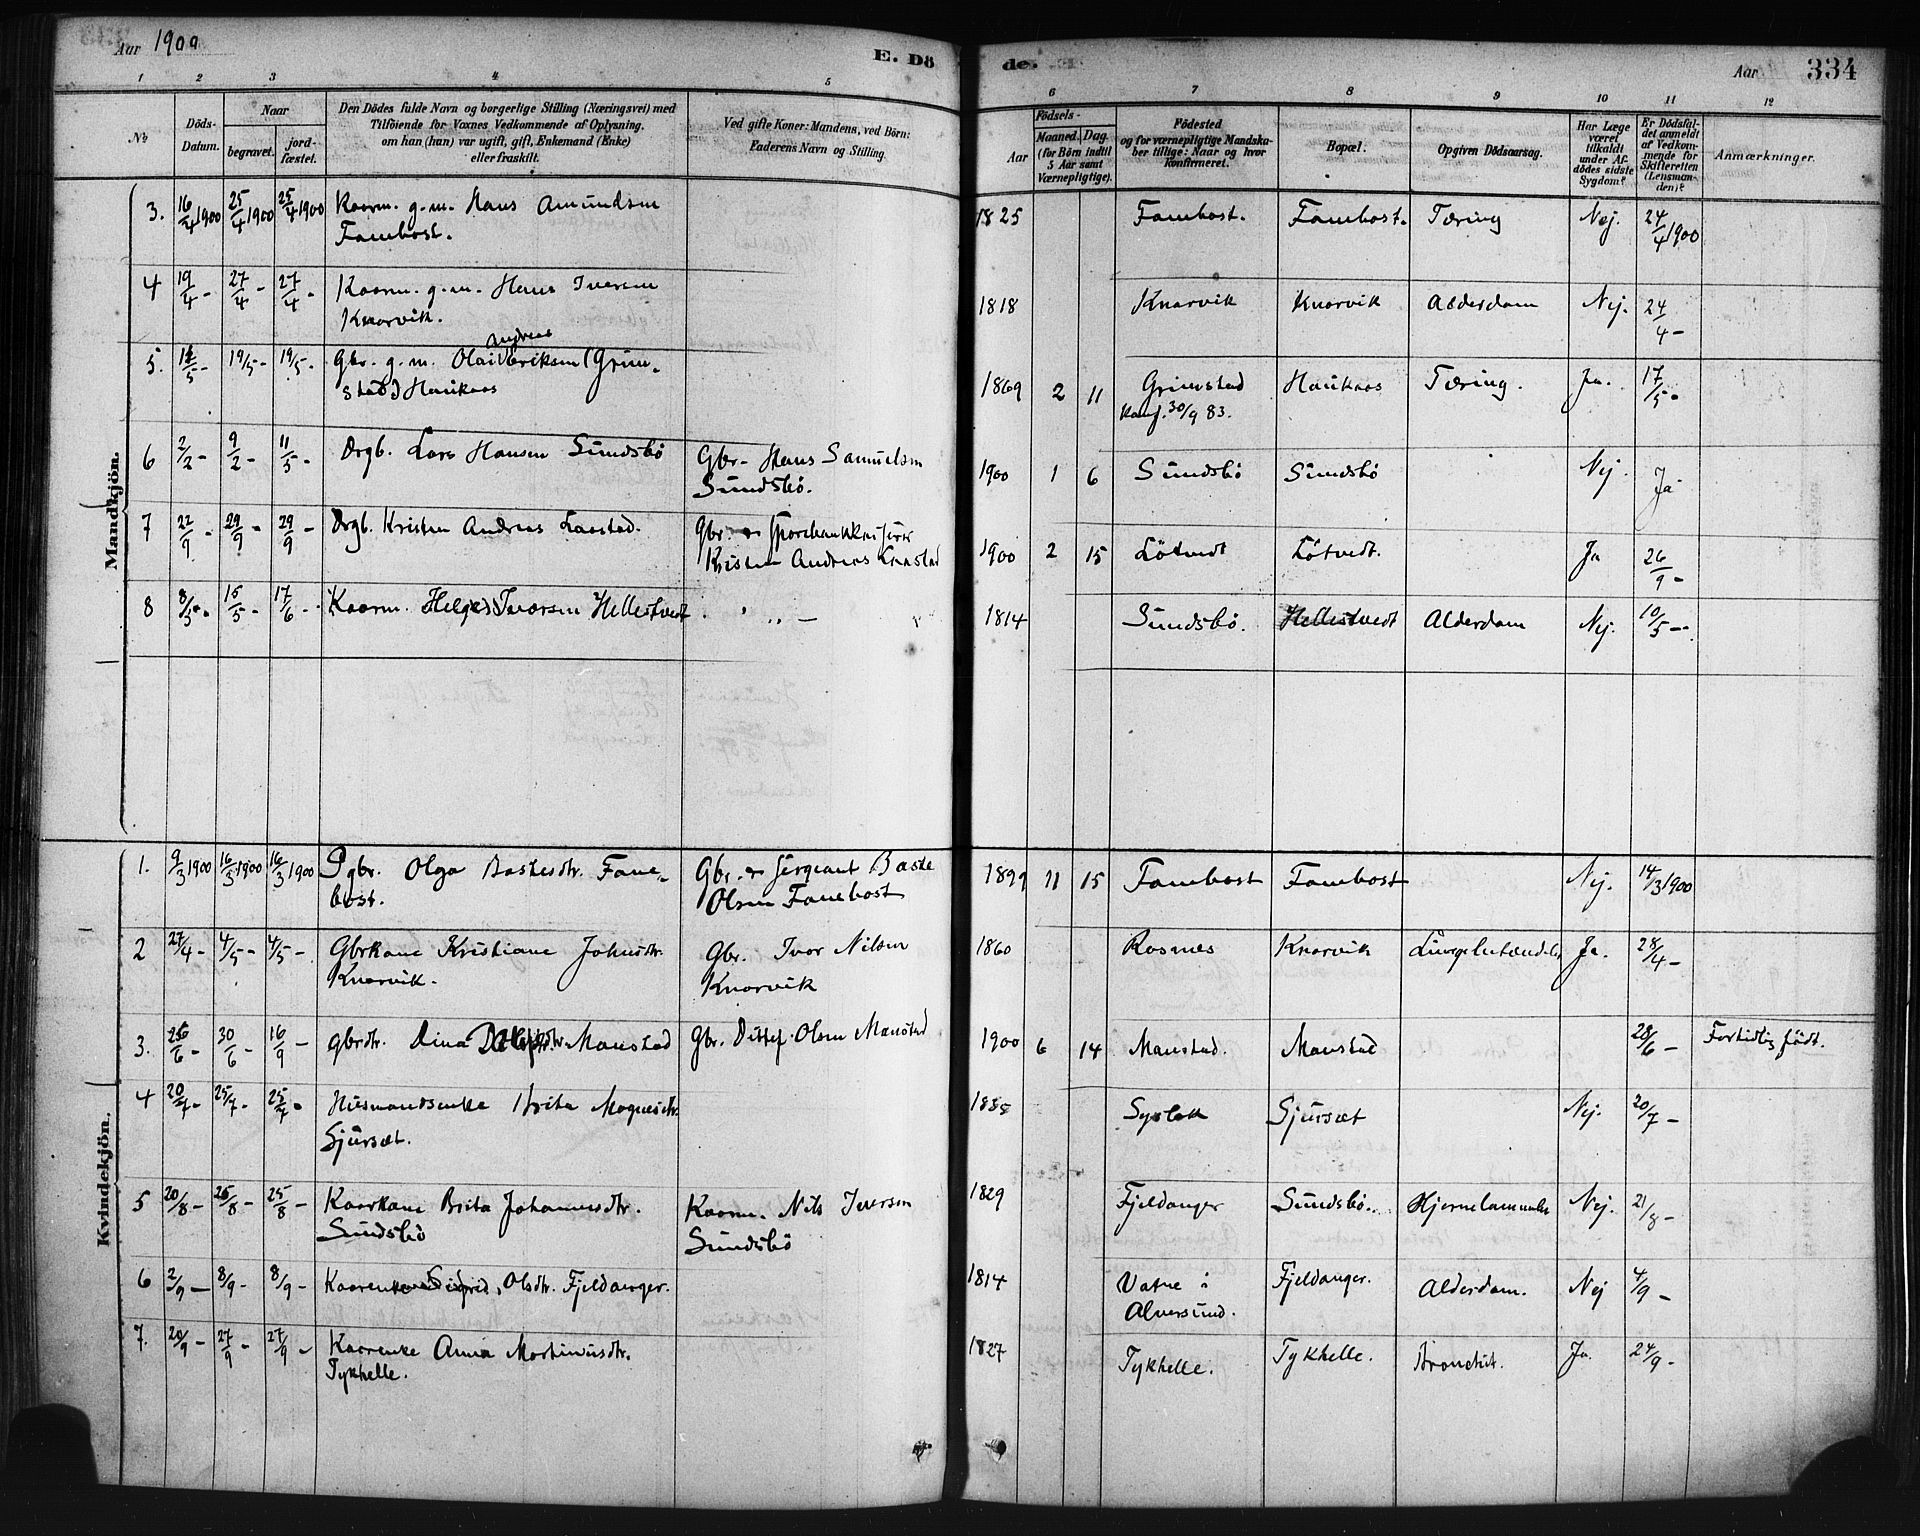 Aar 1900
E. Dö
de.
Aar 334
1 2 3 4 5 6 7 8 9 10 11 12
No
Döds-
Datum.
Naar
begravet.
jord-
fæstet.
Den Dödes fulde Navn og borgerlige Stilling (Næringsvei) med
Tilföiende for Voxnes Vedkommende af Oplysning,
om han (hun) var ugift, gift, Enkemand (Enke)
eller fraskilt.
Ved gifte Koner: Mandens, ved Börn:
Faderens Navn og Stilling.
Födsels-
Aar
Maaned. Dag.
(for Börn indtil
5 Aar samt
Værnepligtige).
Födested
og for værnepligtige Mandska-
ber tillige: Naar og hvor
konfirmeret.
Bopæl.
Opgiven Dödsaarsag.
Har Læge
været
tilkaldt
under Af-
dödes sidste
Sygdom?
Er Dödsfal-
det anmeldt
af Vedkom-
mende for
Skifteretten
(Lensman-
den)?
Anmærkninger.
Mandkjön.
3. 16/4 1900 25/4 1900 25/4 1900 Kaarm. g.m. Hans Amundsen 1825 Fanebost. Fanebost. Tæring Nej. 24/4 1900
Fanebost.
4 19/4 - 27/4 - 27/4 - Kaarm. g.m. Hans Iversen 1818 Knarvik Knarvik Alderdom Nej. 24/4 -
Knarvik.
Andreas
5. 19/5 - 19/5 - Gbr. g.m. Olai Eriksen (Grim- 1869 2 11 Grimstad Haukaas Tæring. Ja. 17/5 -
stad) Haukaas
Konf. 30/9 83.
6 2/2 - 9/2 - 11/5 - Drgb. Lars Hansen Sundsbö Gbr. Hans Samuelsen 1900 1 6 Sundsbö Sundsbö Nej. Ja
Sundsbö.
7 22/9 - 29/9 - 29/9 - Drgb. Kristen Andreas Laastad. Gbr. 1900 2 15 Lötvedt Lötvedt. Ja 26/9 -
Kristen Andreas Laastad
8 8/5 - 15/5 - 17/6 - Kaarm. Helge Iversen Hellestvedt 1814 Sundsbö. Hellestvedt Alderdom Nej. 10/5 -
Kvindekjön.
1. 9/3 1900 16/3 1900 16/3 1900 Pgbr. Olga Bastesdtr. Fane- Gbr. og Sergeant Baste 1899 11 15 Fanebost Fanebost Nej. 14/3 1900
bost. Olsen Fanebost
2 27/4 - 4/5 - 4/5 - Gbrkone Kristiane Johnsdtr. Gbr. Ivar Nilsen 1860 Rosnes Knarvik Lungebetændelse Ja. 28/4 -
Knarvik. Knarvik
3. 26/6 - 30/6 - 16/9 - Gbrdtr. Dina Manstad Gbr. Ditlef Olsen Manstad 1900 6 14 Manstad. Manstad 28/6 - Fortidlig född.
4 20/7 - 25/7 - 25/7 - Husmandsenke Brita Mognesdtr. Syslak Sjursæt Nej. 20/7 -
Sjursæt.
5 20/8 - 25/8 - 25/8 - Kaarkone Brita Johannesdtr. Kaarm. Nils Iversen 1829 Fjeldanger Sundsbö. Hjernelammelse Nej. 21/8 -
Sundsbö Sundsbö
6 2/9 - 8/9 - 8/9 - Kaarenke Sigrid Olsdtr. Fjeldanger. 1814 Vatne i Fjeldanger. Alderdom. Nej 4/9 -
Alversund.
7. 20/9 - 27/9 - 27/9 - Kaarenke Anna Martinusdtr. 1827 Tykhelle. Tykhelle. Bronchit. Ja. 24/9 -
Tykhelle.